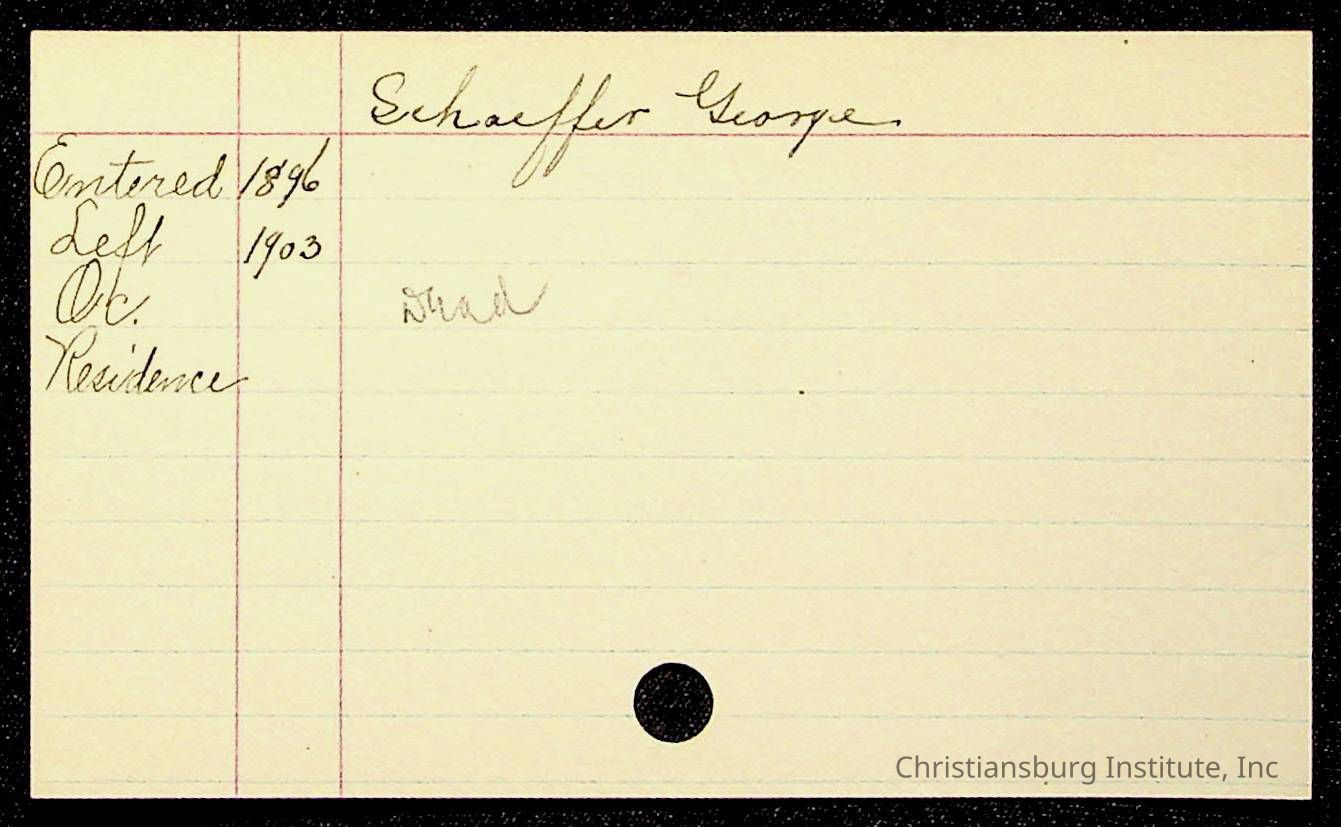 Schaeffer George.
Entered 1896
Left 1903
Oc. Dead
Residence
Christiansburg Institute, Inc